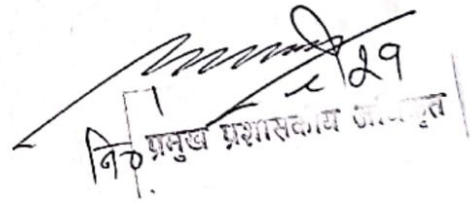 २९
नि० प्रमुख प्रशासकीय अधिकृत